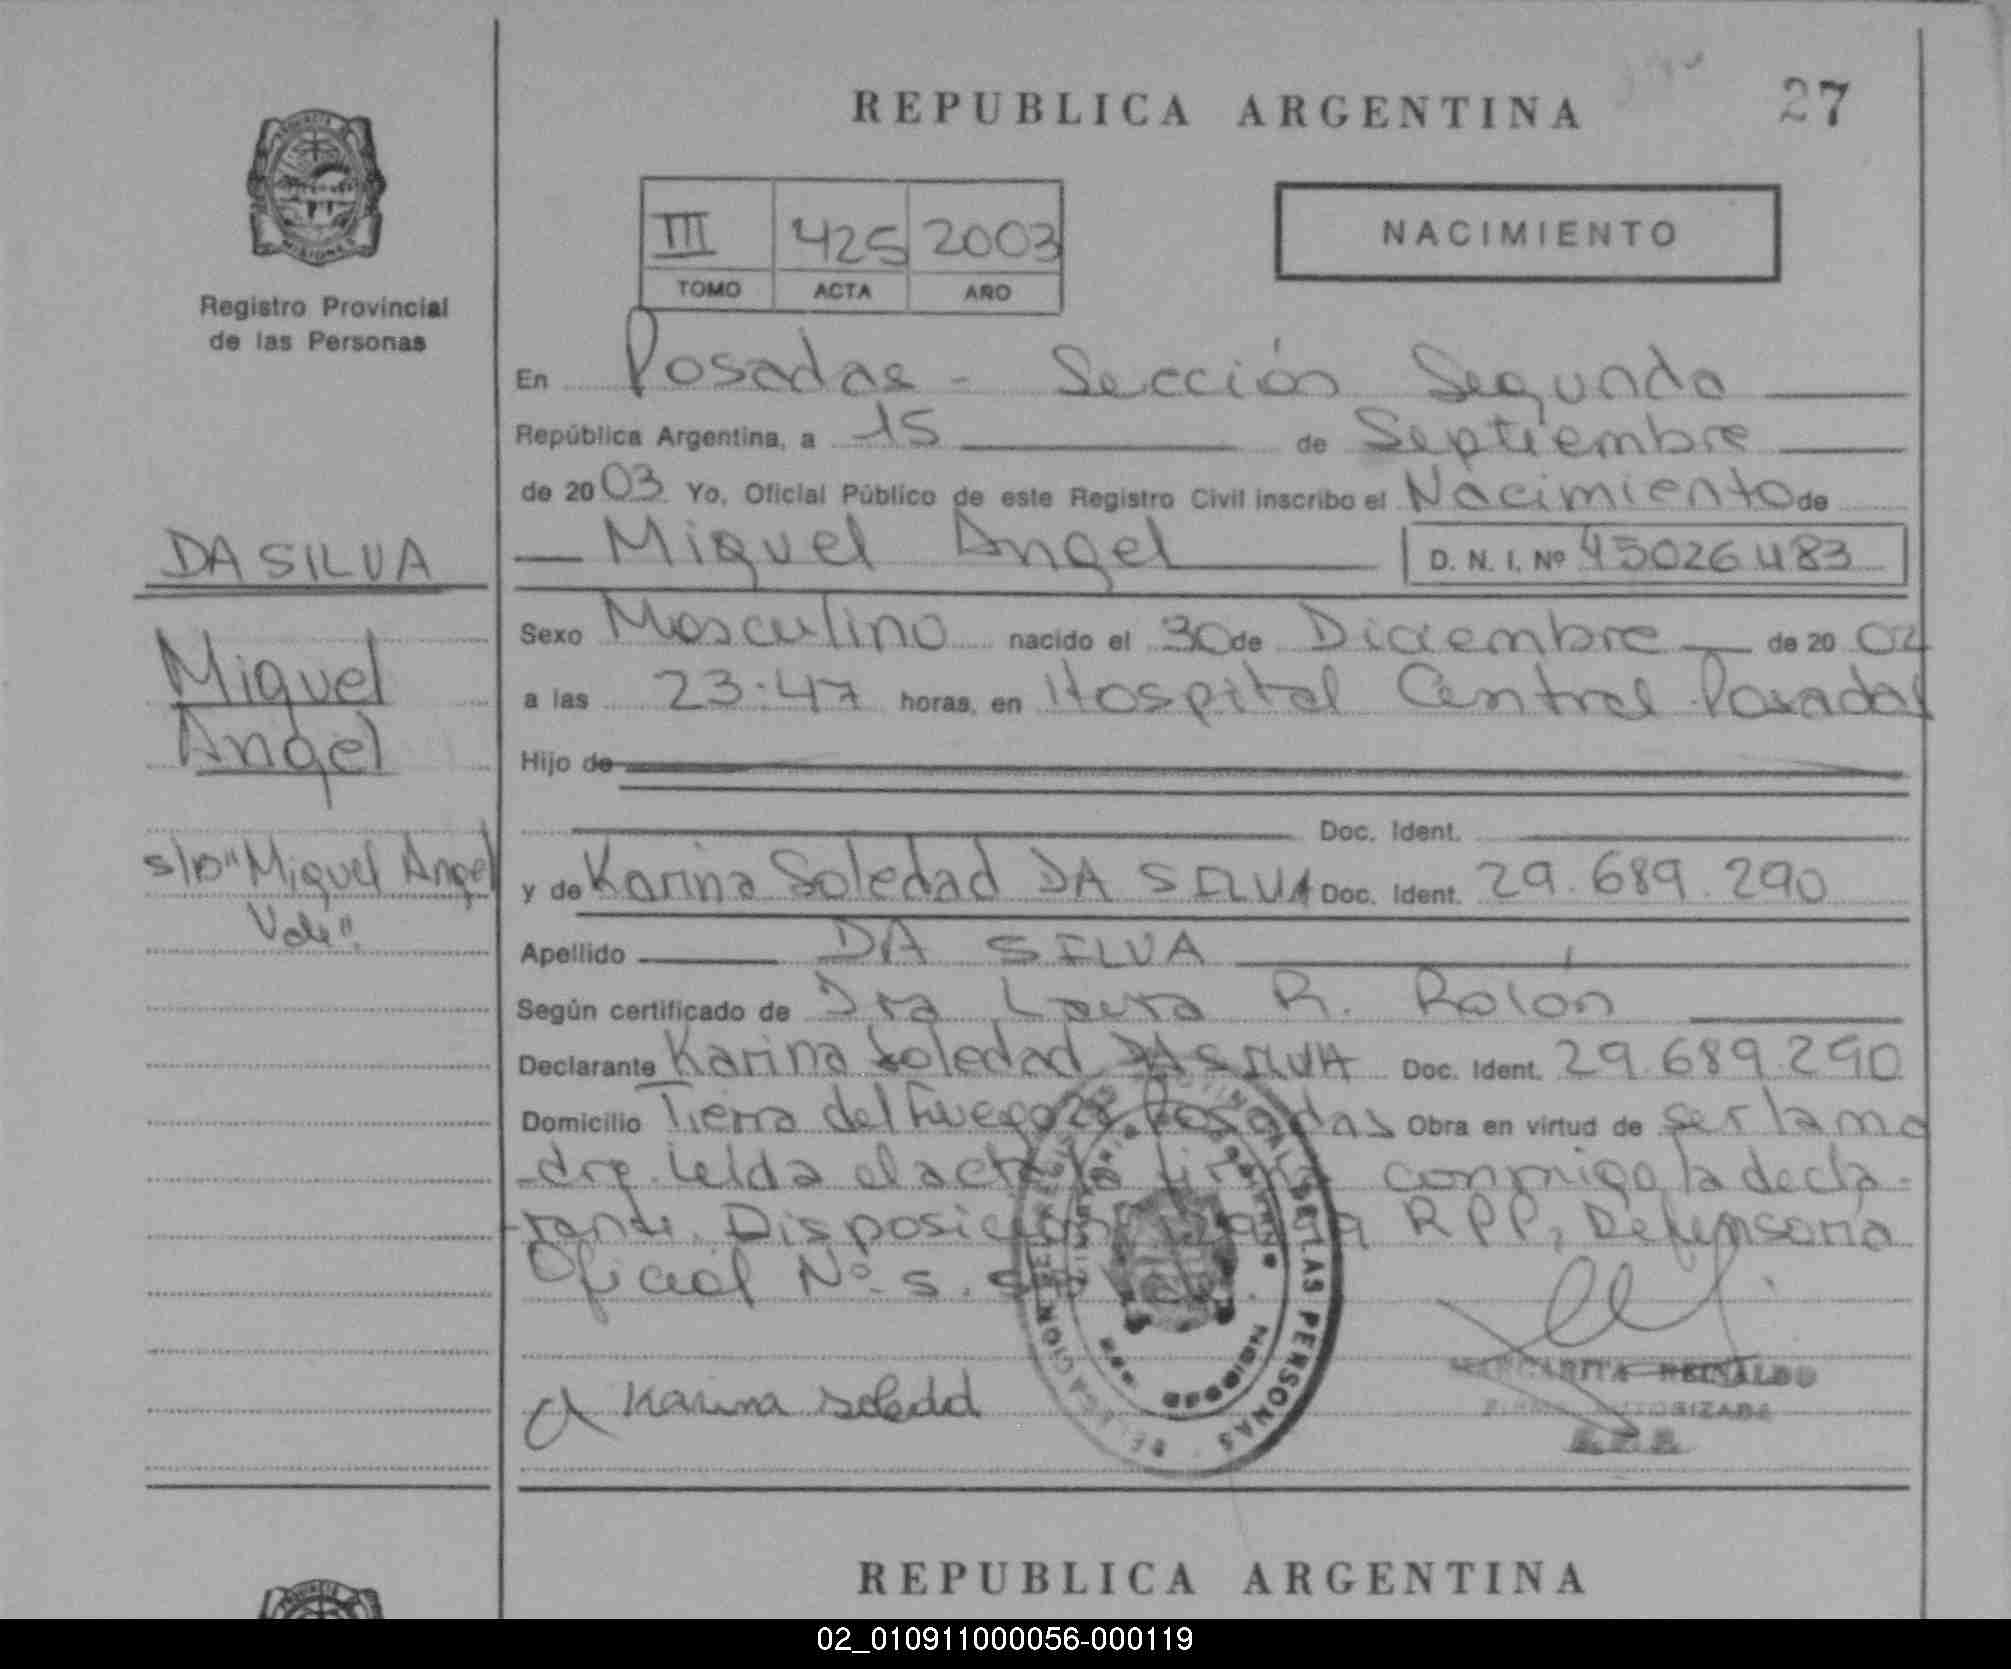 REPUBLICA ARGENTINA
27
Registro Provincial
de las Personas
III 425 2003
TOMO ACTA AÑO
NACIMIENTO
En Posadas - Sección Segunda
República Argentina, a 15 de Septiembre
de 2003 Yo, Oficial Público de este Registro Civil inscribo el Nacimiento de
Miguel Angel D. N. I. Nº 45026483
DA SILVA
Miguel
Angel
s/D "Miguel Angel
Vale".
Sexo Masculino nacido el 30 de Diciembre de 20 02
a las 23:47 horas, en Hospital Central Posadas
Hijo de
Doc. Ident.
y de Karina Soledad DA SILVA Doc. Ident. 29.689.290
Apellido DA SILVA
Según certificado de Dra Laura R. Rolón
Declarante Karina Soledad DA SILVA Doc. Ident. 29.689.290
Domicilio Tierra del Fuego 28 Posadas Obra en virtud de ser la ma
-dre. Leída el acta la firma conmigo la decla-
-rante. Disposición RPP, Defensoria
Oficial Nº 5.
Karina Soledad
DE LAS PERSONAS
MARGARITA REINALDO
FIRMA AUTORIZADA
REPUBLICA ARGENTINA
02_010911000056-000119